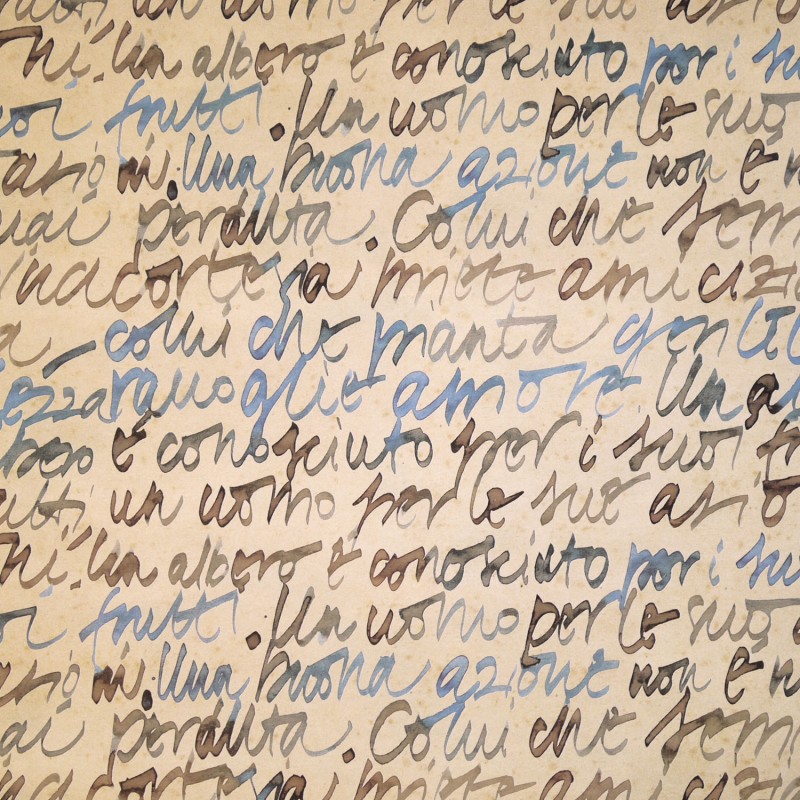 un uomo per le sue asio
ni. Un albero è conosciuto per i su
oi frutti. Un uomo per le sue
asioni. Una buona azione non è m
ai perduta. Colui che sem
ina cortesia miete amicizi
a - colui che pianta gentil
ezza raquoglie amore. Un al
bero è conosciuto per i suoi fr
utti un uomo per le sue asio
ni. Un albero è conosciuto per i su
oi frutti. Un uomo per le suo
asioni. Una buona azione non è m
ai perduta. Colui che sem
ina cortesia miete amicizi